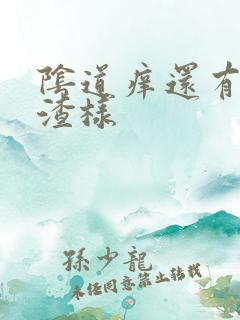 陰道痒還有
渣樣
孫少龍
未经同意禁止转载